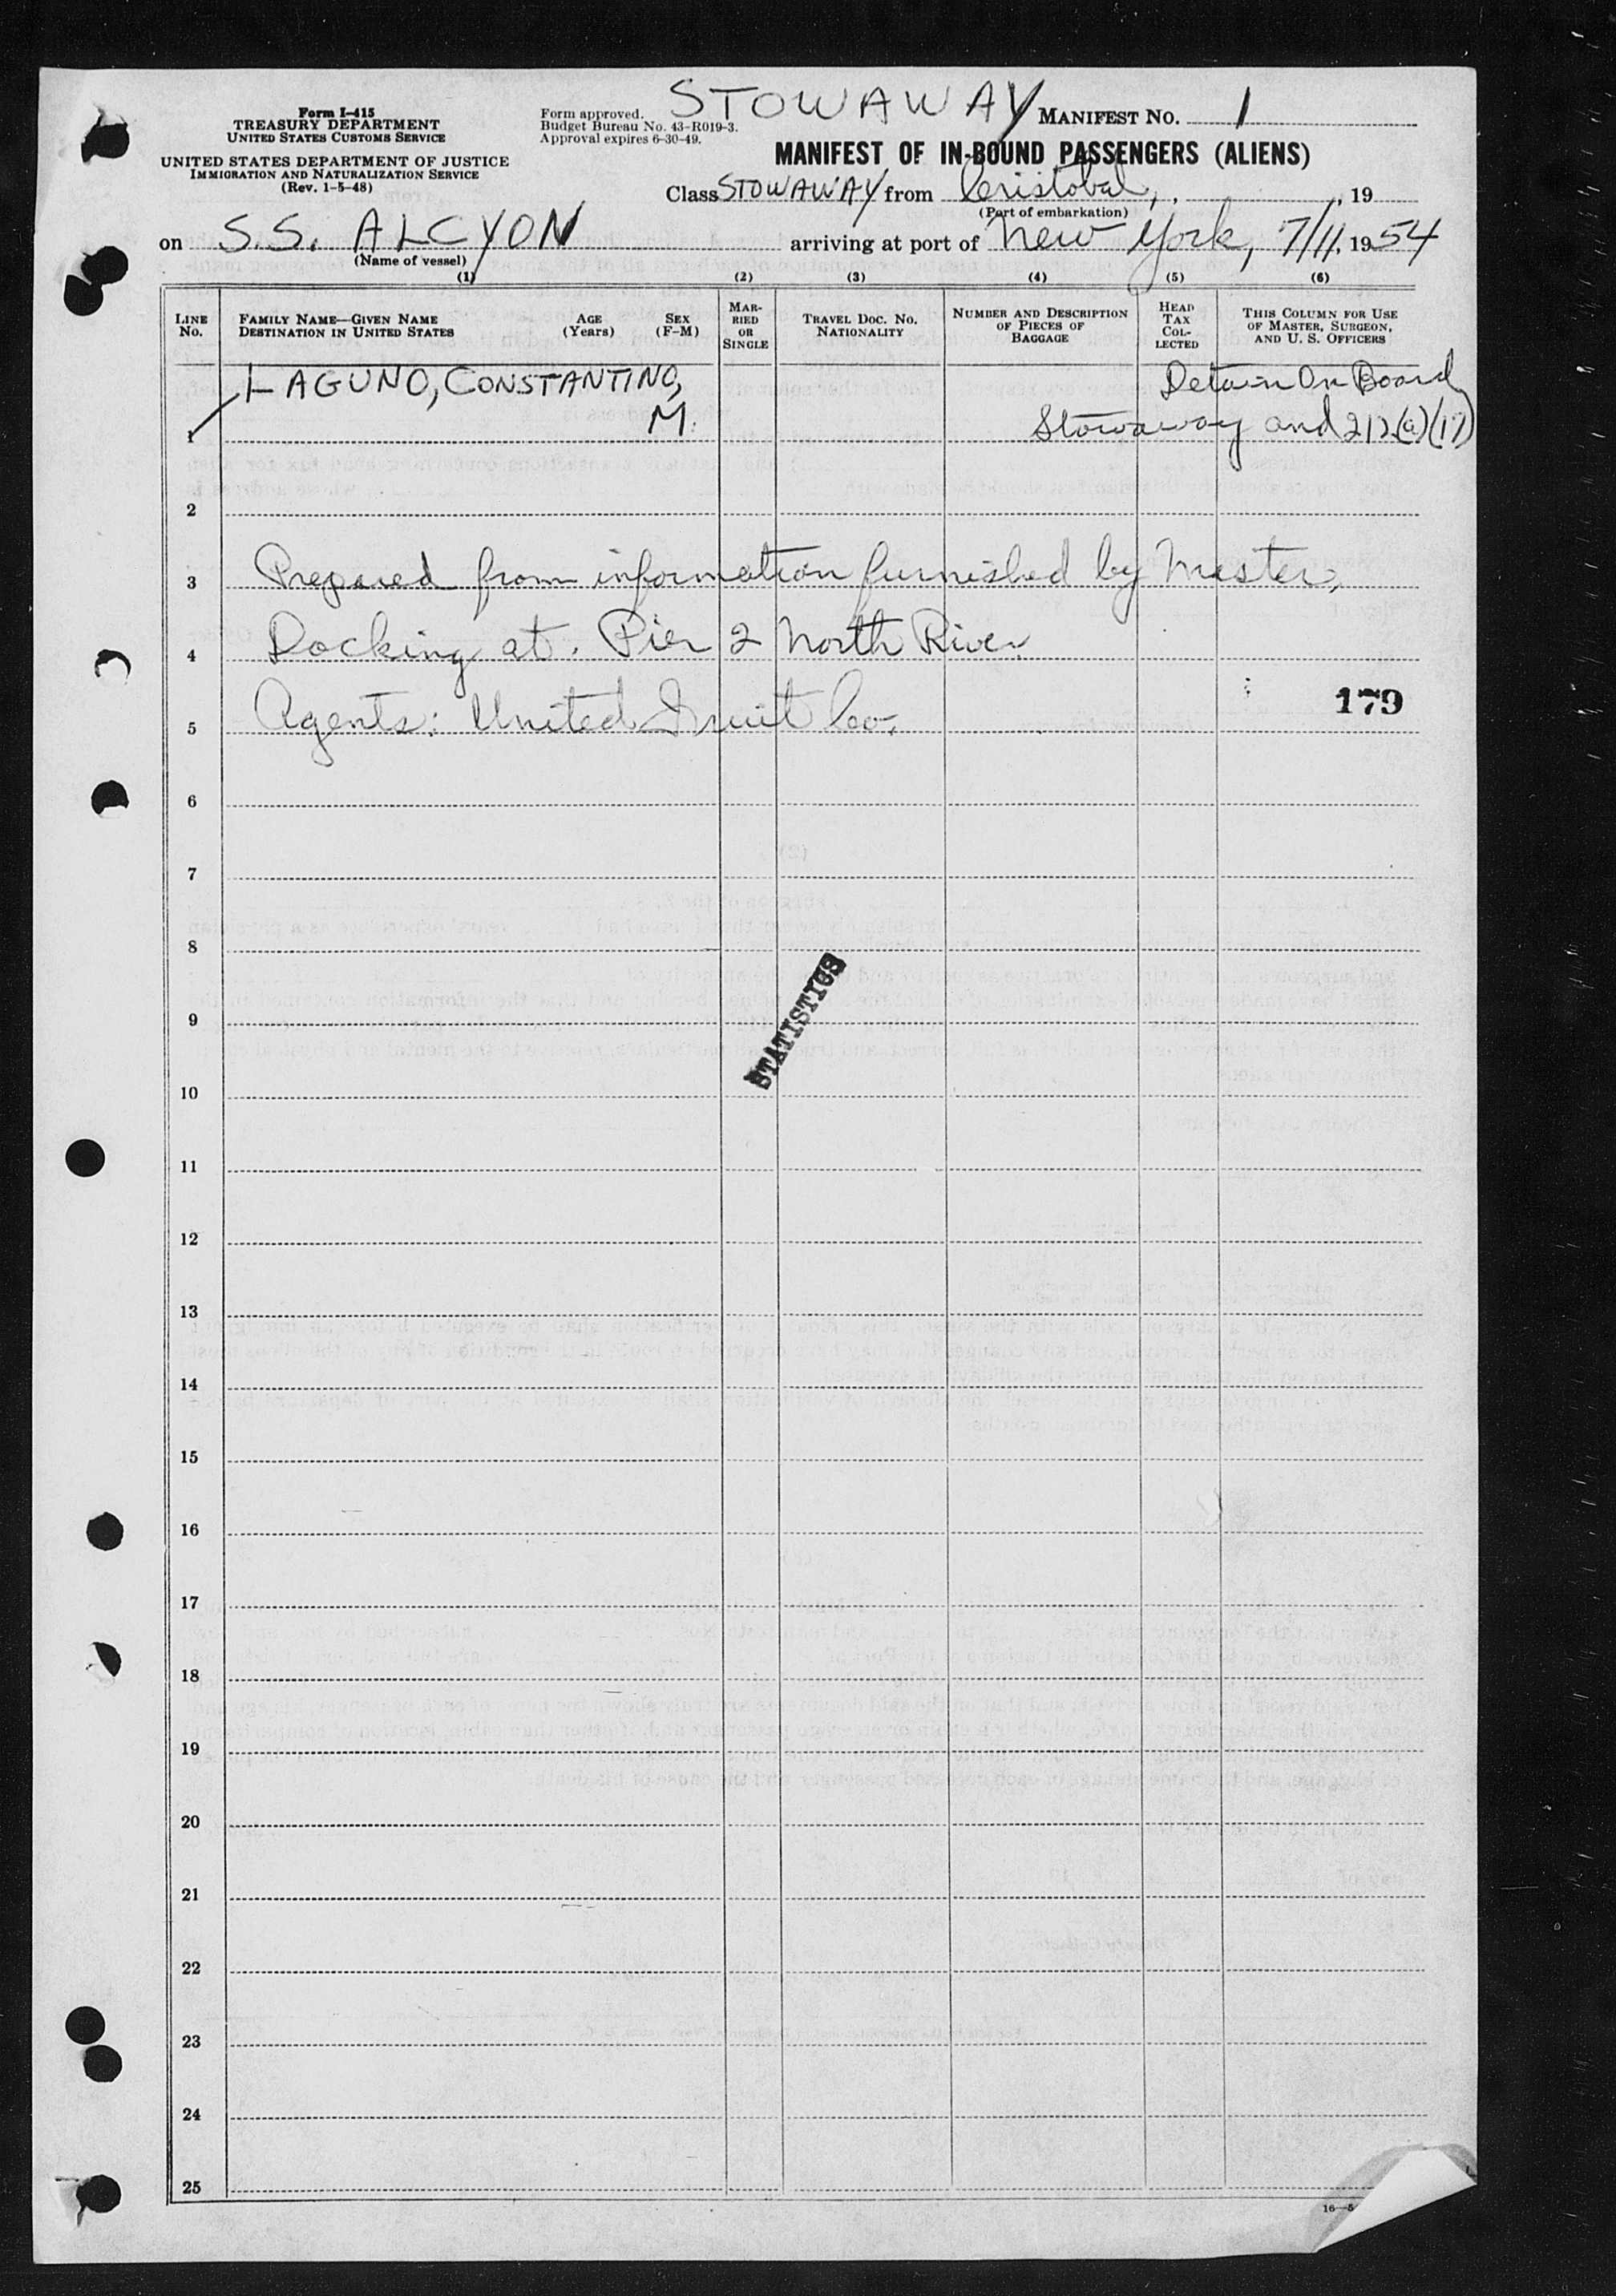 STOWAWAY
Form I-415
TREASURY DEPARTMENT
UNITED STATES CUSTOMS SERVICE
UNITED STATES DEPARTMENT OF JUSTICE
IMMIGRATION AND NATURALIZATION SERVICE
(Rev. 1-5-48)
Form approved.
Budget Bureau No. 43-R019-3.
Approval expires 6-30-49.
MANIFEST NO. 1
MANIFEST OF IN-BOUND PASSENGERS (ALIENS)
Class STOWAWAY from Cristobal, , , 19
(Port of embarkation)
on S.S. ALCYON arriving at port of New York, 7/11, 1954
(Name of vessel)
(1) (2) (3) (4) (5) (6)
LINE No.
FAMILY NAME—GIVEN NAME
DESTINATION IN UNITED STATES
AGE (Years)
SEX (F-M)
MARRIED OR SINGLE
TRAVEL DOC. NO.
NATIONALITY
NUMBER AND DESCRIPTION
OF PIECES OF
BAGGAGE
HEAD
TAX
COL-
LECTED
THIS COLUMN FOR USE
OF MASTER, SURGEON,
AND U. S. OFFICERS
LAGUNO, CONSTANTINO, Detain On Board
1 M. Stowaway and 212(a)(17)
2
3 Prepared from information furnished by Master,
4 Docking at. Pier 2 North River
179
5 Agents: United Fruit Co.
6
7
8
STATISTICS
9
10
11
12
13
14
15
16
17
18
19
20
21
22
23
24
25